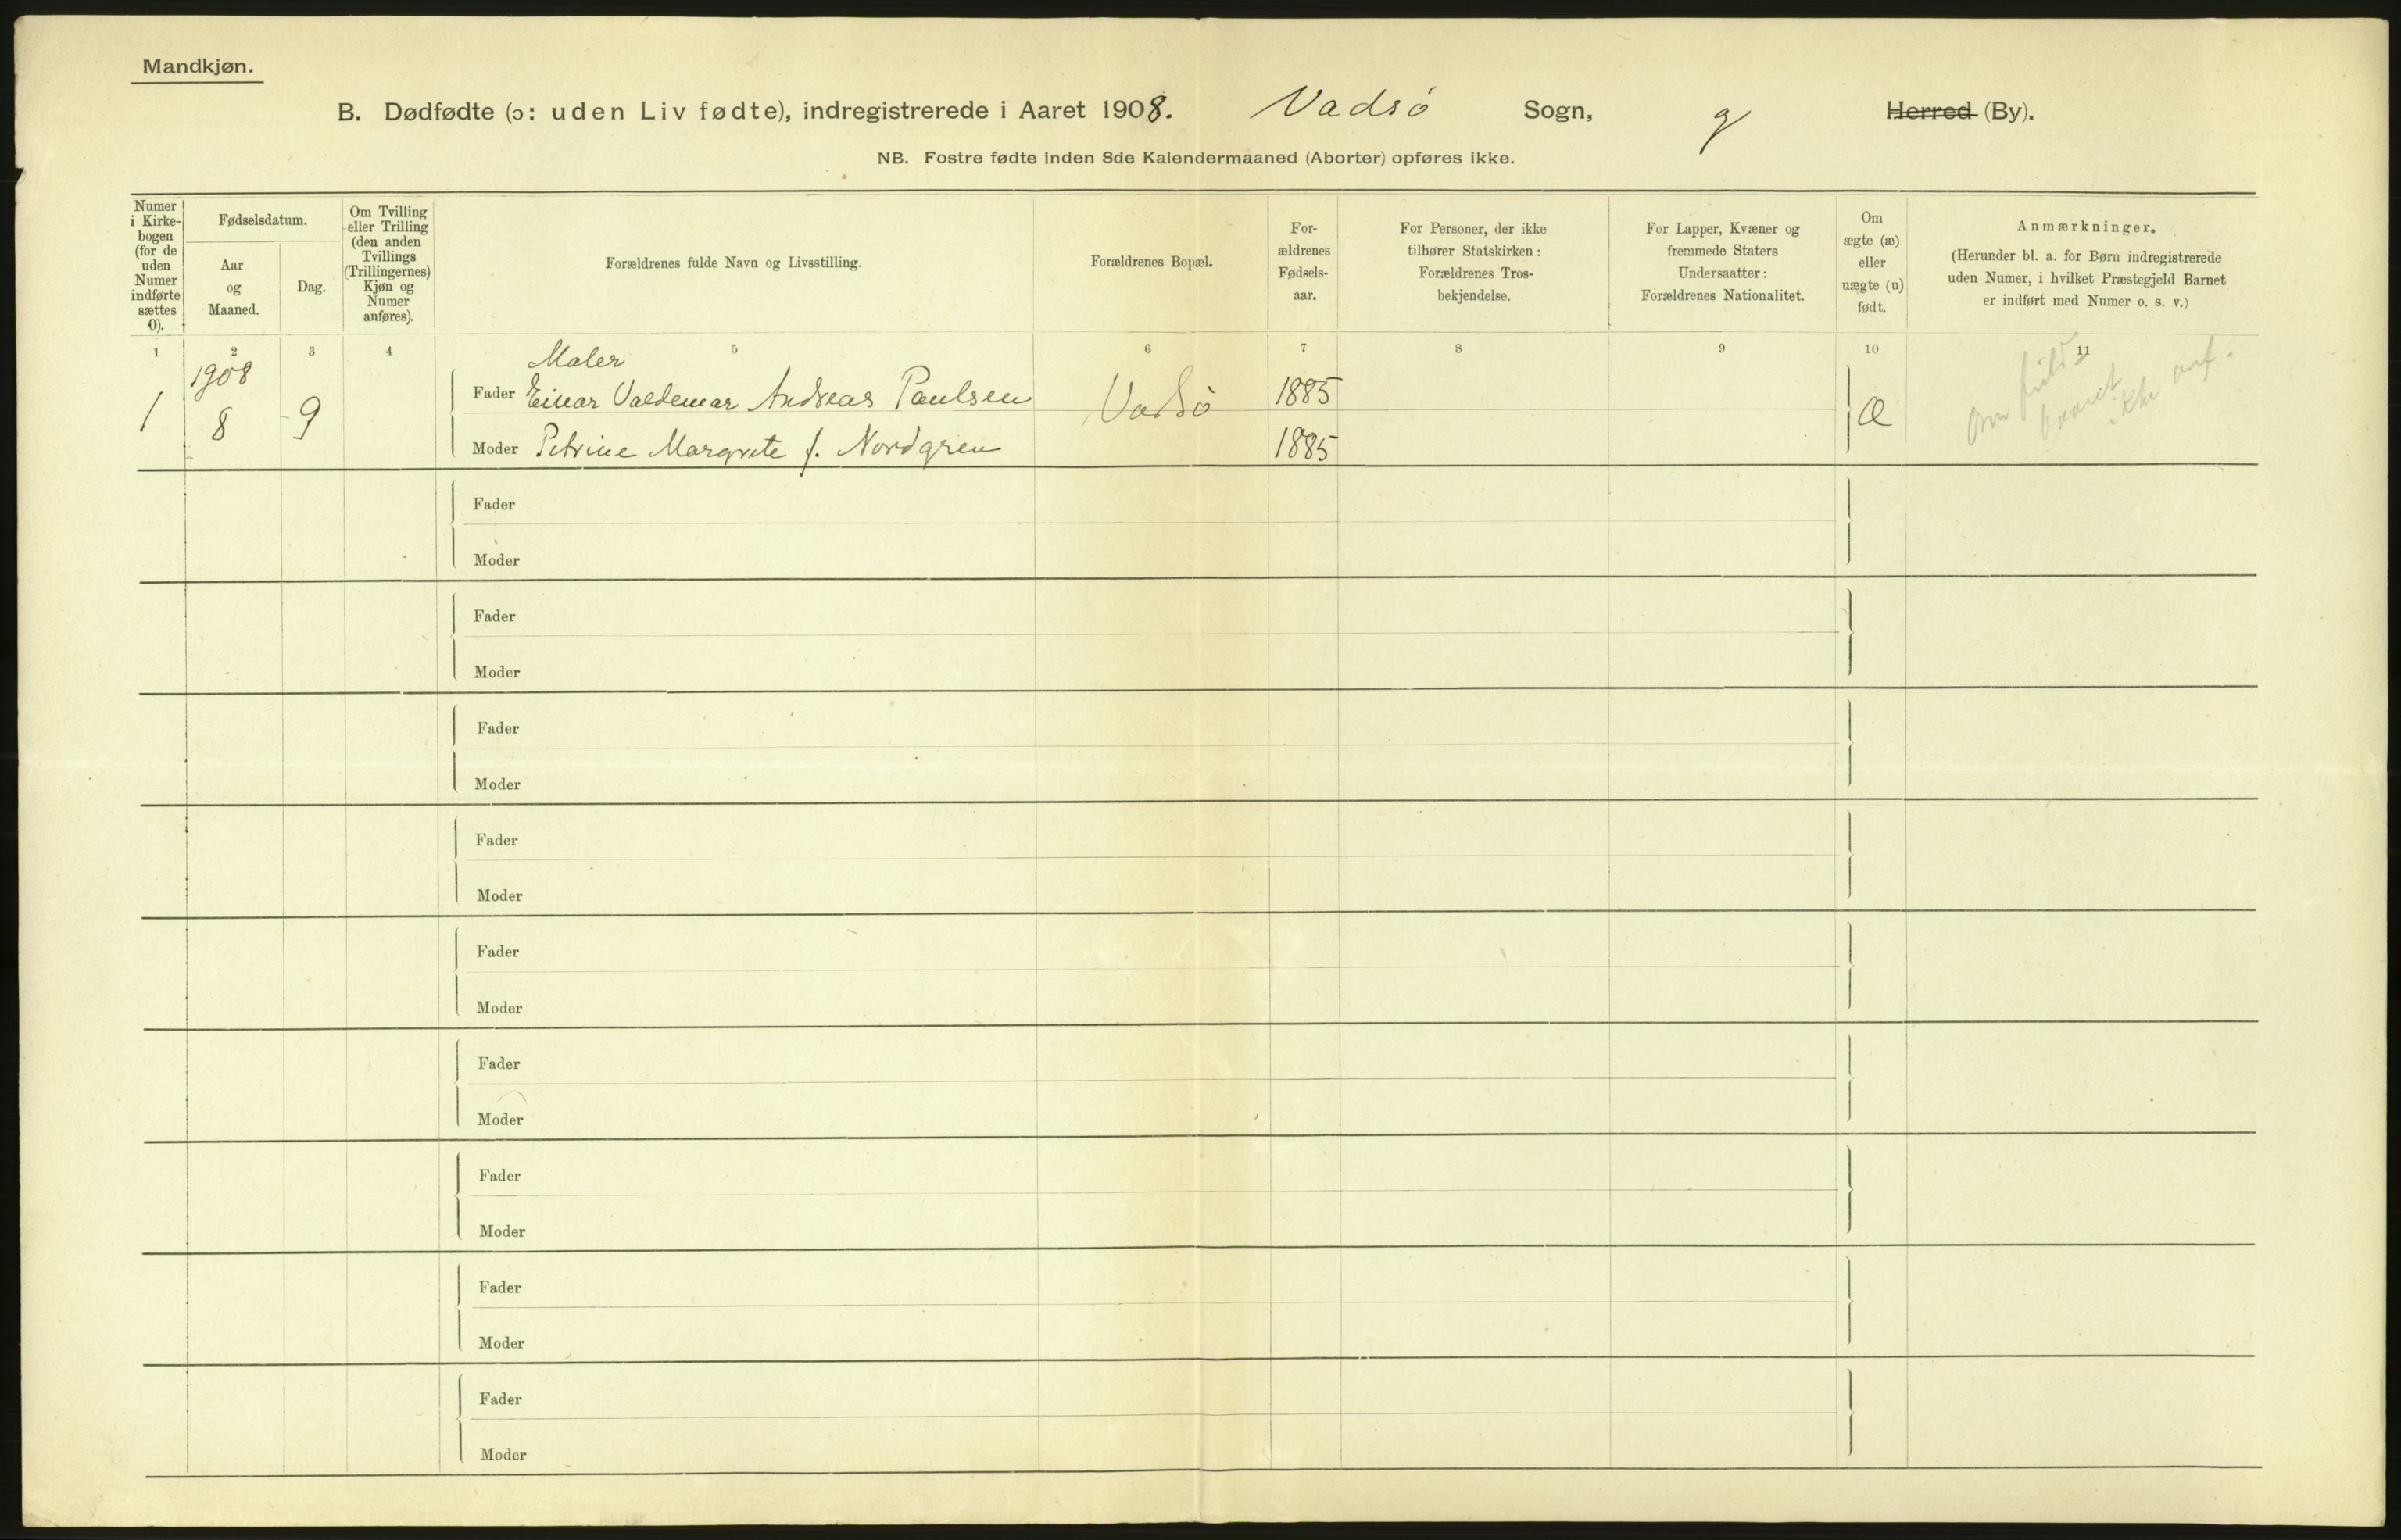 Mandkjøn.
B. Dødfødte (ɔ: uden Liv fødte), indregistrerede i Aaret 1908. Vadsö Sogn, Herred (By).
NB. Fostre fødte inden 8de Kalendermaaned (Aborter) opføres ikke.
Numer
i Kirke-
bogen
(for de
uden
Numer
indførte
sættes
0).
Fødselsdatum.
Aar
og
Maaned.
Dag.
Om Tvilling
eller Trilling
(den anden
Tvillings
(Trillingernes)
Kjøn og
Numer
anføres).
Forældrenes fulde Navn og Livsstilling.
Forældrenes Bopæl.
For-
ældrenes
Fødsels-
aar.
For Personer, der ikke
tilhører Statskirken:
Forældrenes Tros-
bekjendelse.
For Lapper, Kvæner og
fremmede Staters
Undersaatter:
Forældrenes Nationalitet.
Om
ægte (æ)
eller
uægte (u)
født.
Anmærkninger.
(Herunder bl. a. for Børn indregistrerede
uden Numer, i hvilket Præstegjeld Barnet
er indført med Numer o. s. v.)
1 2 3 4 5 6 7 8 9 10 11
1908
1 8 9
Maler
Fader Einar Valdemar Andreas Paulsen Vadsö 1885 Æ
Moder Petrine Margrete f. Nordgren 1885
Om fuldb
baaret
ikke anf.
Fader
Moder
Fader
Moder
Fader
Moder
Fader
Moder
Fader
Moder
Fader
Moder
Fader
Moder
Fader
Moder
Fader
Moder